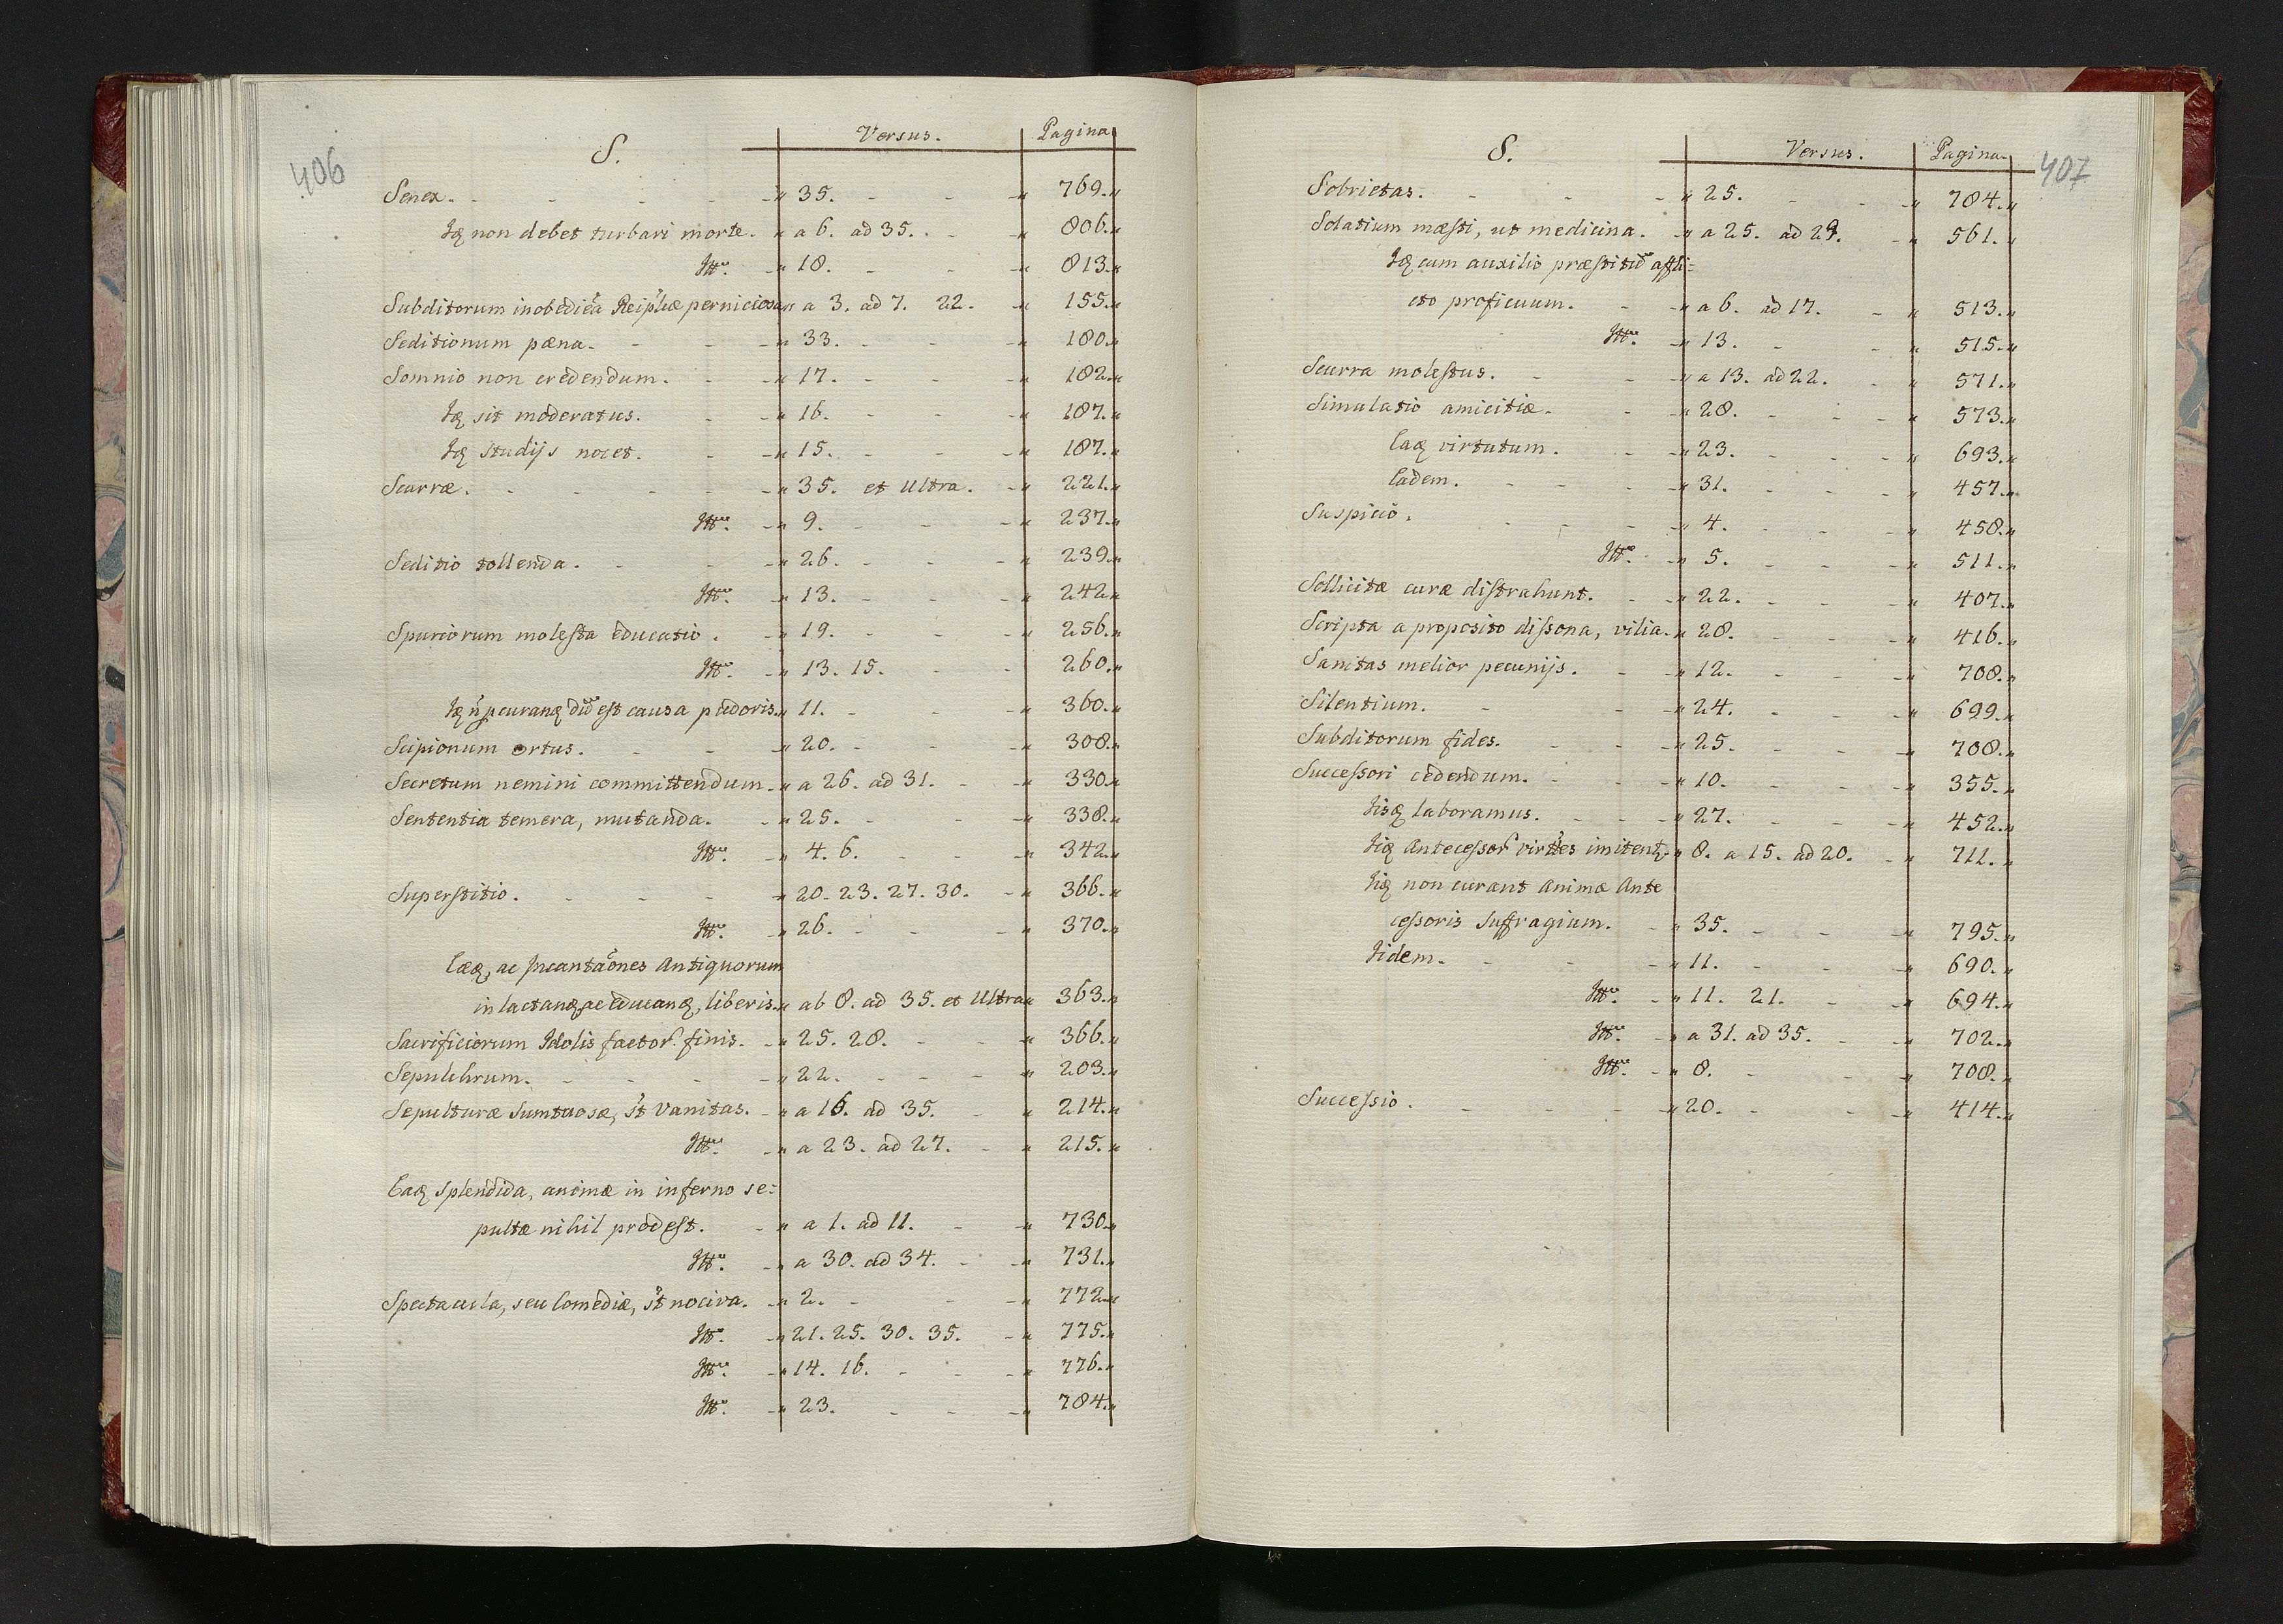 406
S. Versus. Pagina
Senex. " 35. " 769. "
Idq non debet turbari morte. " a 6. ad 35. " 806. "
Itt. " 18. " 813. "
Subditorum inobediẽa Reipħcæ perniciosa " a 3. ad 7. 22. " 155. "
Seditionum pæna. " 33. " 180. "
Somnio non credendum. " 17. " 182. "
Idq sit moderatus. " 16. " 187. "
Idq studijs nocet. " 15. " 187. "
Scurræ. " 35. et Ultra. " 221. "
Itt. " 9. " 237. "
Seditio tollenda. " 26. " 239. "
Itt. " 13. " 242. "
Spuriorum molesta educatio. " 19. " 256. "
Itt. " 13. 15. " 260. "
est causa pudoris. " 11. " 360. "
Scipionum ortus. " 20. " 308. "
Secretum nemini committendum. " a 26. ad 31. " 330. "
Sententia temera, mutanda. " 25. " 338. "
Itt. " 4. 6. " 342. "
Superstitio. " 20. 23. 27. 30. " 366. "
Itt. " 26. " 370. "
Eæq, ac Incantãones Antiquorum
in lactanq, ac educanq, liberis. " ab 8. ad 35. et Ultra " 363. "
Sacrificiorum Idolis factor. finis. " 25. 28. " 366. "
Sepulchrum. " 22. " 203. "
Sepulturæ Sumtuosæ, st̃ Vanitas. " a 16. ad 35. " 214. "
Itt. " a 23. ad 27. " 215. "
Eaq splendida, animæ in inferno se:
pultæ nihil prodest. " a 1. ad 11. " 730. "
Itt. " a 30. ad 34. " 731. "
Spectacula, seu Comediæ, st̃ nociva. " 2. " 772. "
Itt. " 21. 25. 30. 35. " 775. "
Itt. " 14. 16. " 776. "
Itt. " 23. " 784. "
S. Versus. Pagina. 407
Sobrietas. " 25. " 784. "
Solatium mæsti, ut medicina. " a 25. ad 29. " 561. "
Idq cum auxilio præstitũ affli:
cto proficuum. " a 6. ad 17. " 513. "
Itt. " 13. " 515. "
Scurra molestus. " a 13. ad 22. " 571. "
Simulatio amicitiæ. " 28. " 573. "
Eaq virtutum. " 23. " 693. "
Eadem. " 31. " 457. "
Suspicio. " 4. " 458. "
Itt. " 5. " 511. "
Sollicitæ curæ distrahunt. " 22. " 407. "
Scripta a proposito dissona, vilia. " 28. " 416. "
Sanitas melior pecunijs. " 12. " 708. "
Silentium. " 24. " 699. "
Subditorum fides. " 25. " 708. "
Successori cedendum. " 10. " 355. "
Iisq laboramus. " 27. " 452. "
Iiq Antecessor virtũes imitentq " 8. a 15. ad 20. " 711. "
Iiq non curant Animæ Ante
cessoris Suffragium. " 35. " 795. "
Iidem. " 11. " 690. "
Itt. " 11. 21. " 694. "
Itt. " a 31. ad 35. " 702. "
Itt. " 8. " 708. "
Successio. " 20. " 414. "